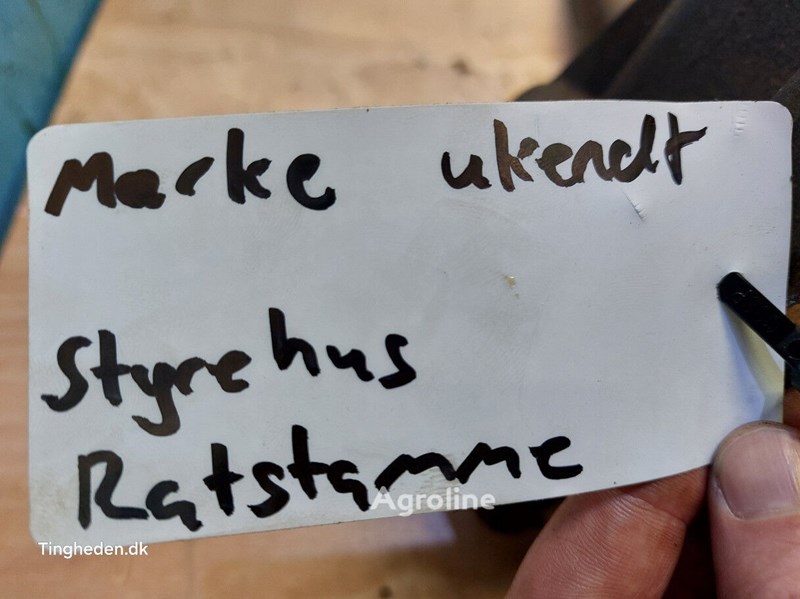 Marke ukendt
Styrehus
Ratstamme
Agroline
Tingheden.dk